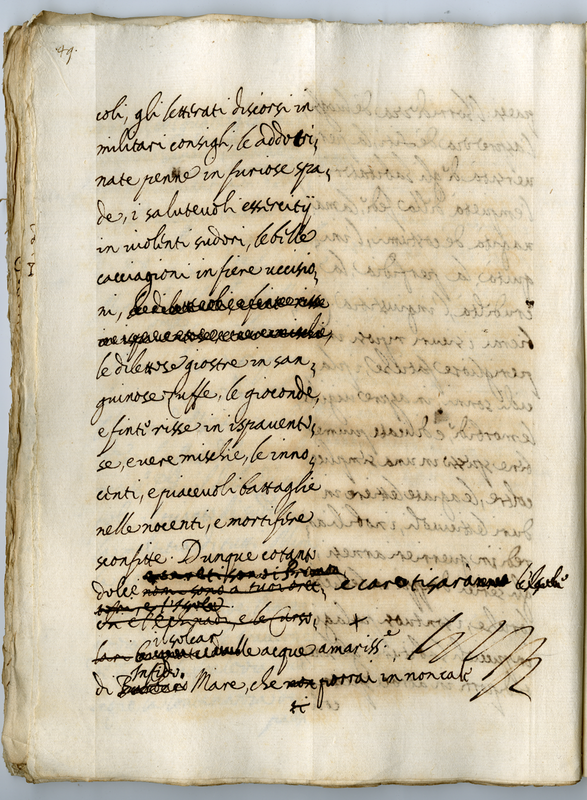 49.
coli, gli letterati discorsi in
militari consigli, le addottri,
nate penne in furiose spa,
de, i salutevoli essercitÿ
in violenti sudori, le belle
cacciagioni in fiere uccisio,
ni,
le dilettose giostre in san,
guinose zuffe, le gioconde,
e finte risse in ispavento,
se, e vere mischie, le inno,
centi, e piacevoli battaglie
nelle nocenti, e mortifere
sconfitte. Dunque cotant
dolce non sono a tuoi e caro ti sarà
e le Curso,
il solcar
lle acque amariss.e
Infido
di Mare, che non porrai in non cale
ti